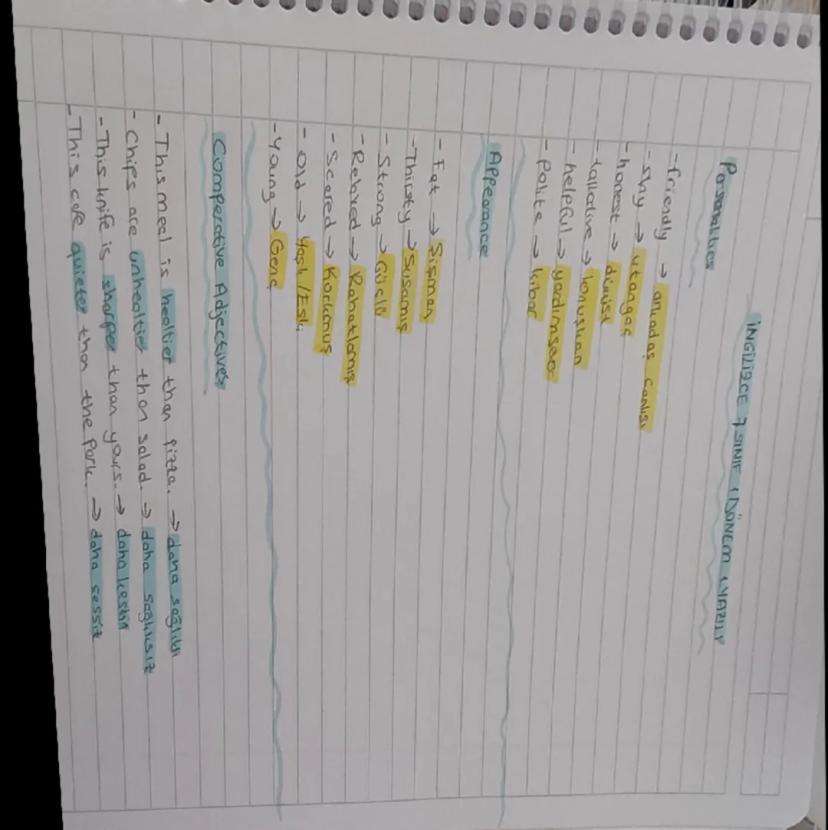 İNGİLİZCE 7 SINIF 1.DÖNEM 1.YAZILI
Personalities
- friendly → arkadaş canlısı
- shy → utangaç
- honest → dürüst
- tallative → konuşkan
- helpful → yardımsever
- polite → kibar
Appearance
- Fat → Şişman
- Thirsty → Susamış
- Strong → Güçlü
- Relaxed → Rahatlamış
- Scared → Korkmuş
- Old → Yaşlı / Eski
- Young → Genç
Comperative Adjectives
- This meal is healtier than pizza. → daha sağlıklı
- Chips are unhealtier than salad. → daha sağlıksız
- This knife is sharper than yours. → daha keskin
- This cafe quieter than the park. → daha sessiz